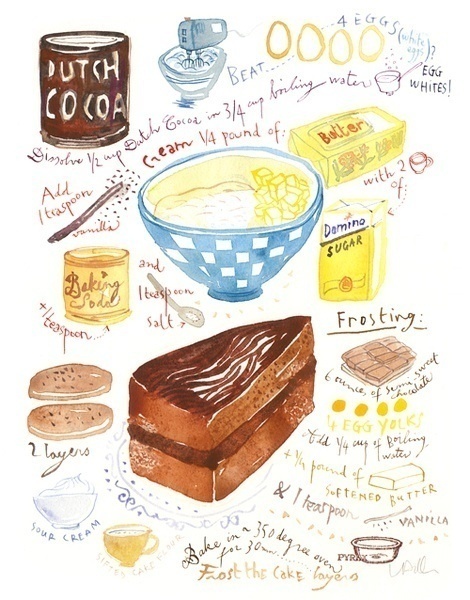 DUTCH
COCOA
4 EGGS
(white
eggs)?
BEAT
EGG
WHITES!
Dissolve 1/2 cup Dutch Cocoa in 3/4 cup boiling water
Cream 1/4 pound of:
Butter
with 2
of:
Add
1 teaspoon
vanilla
Domino
SUGAR
Baking
Soda
+1 teaspoon
and
1 teaspoon
salt
Frosting:
6 ounces of semi sweet
chocolate
4 EGG YOLKS
Add 1/4 cup of Boiling
water
+ 1/4 pound of
SOFTENED BUTTER
& 1 teaspoon
VANILLA
2 layers
SOUR CREAM
CAKE FLOUR
Bake in a 350 degree oven
for 30 min
Frost the CAKE layers
PYREX